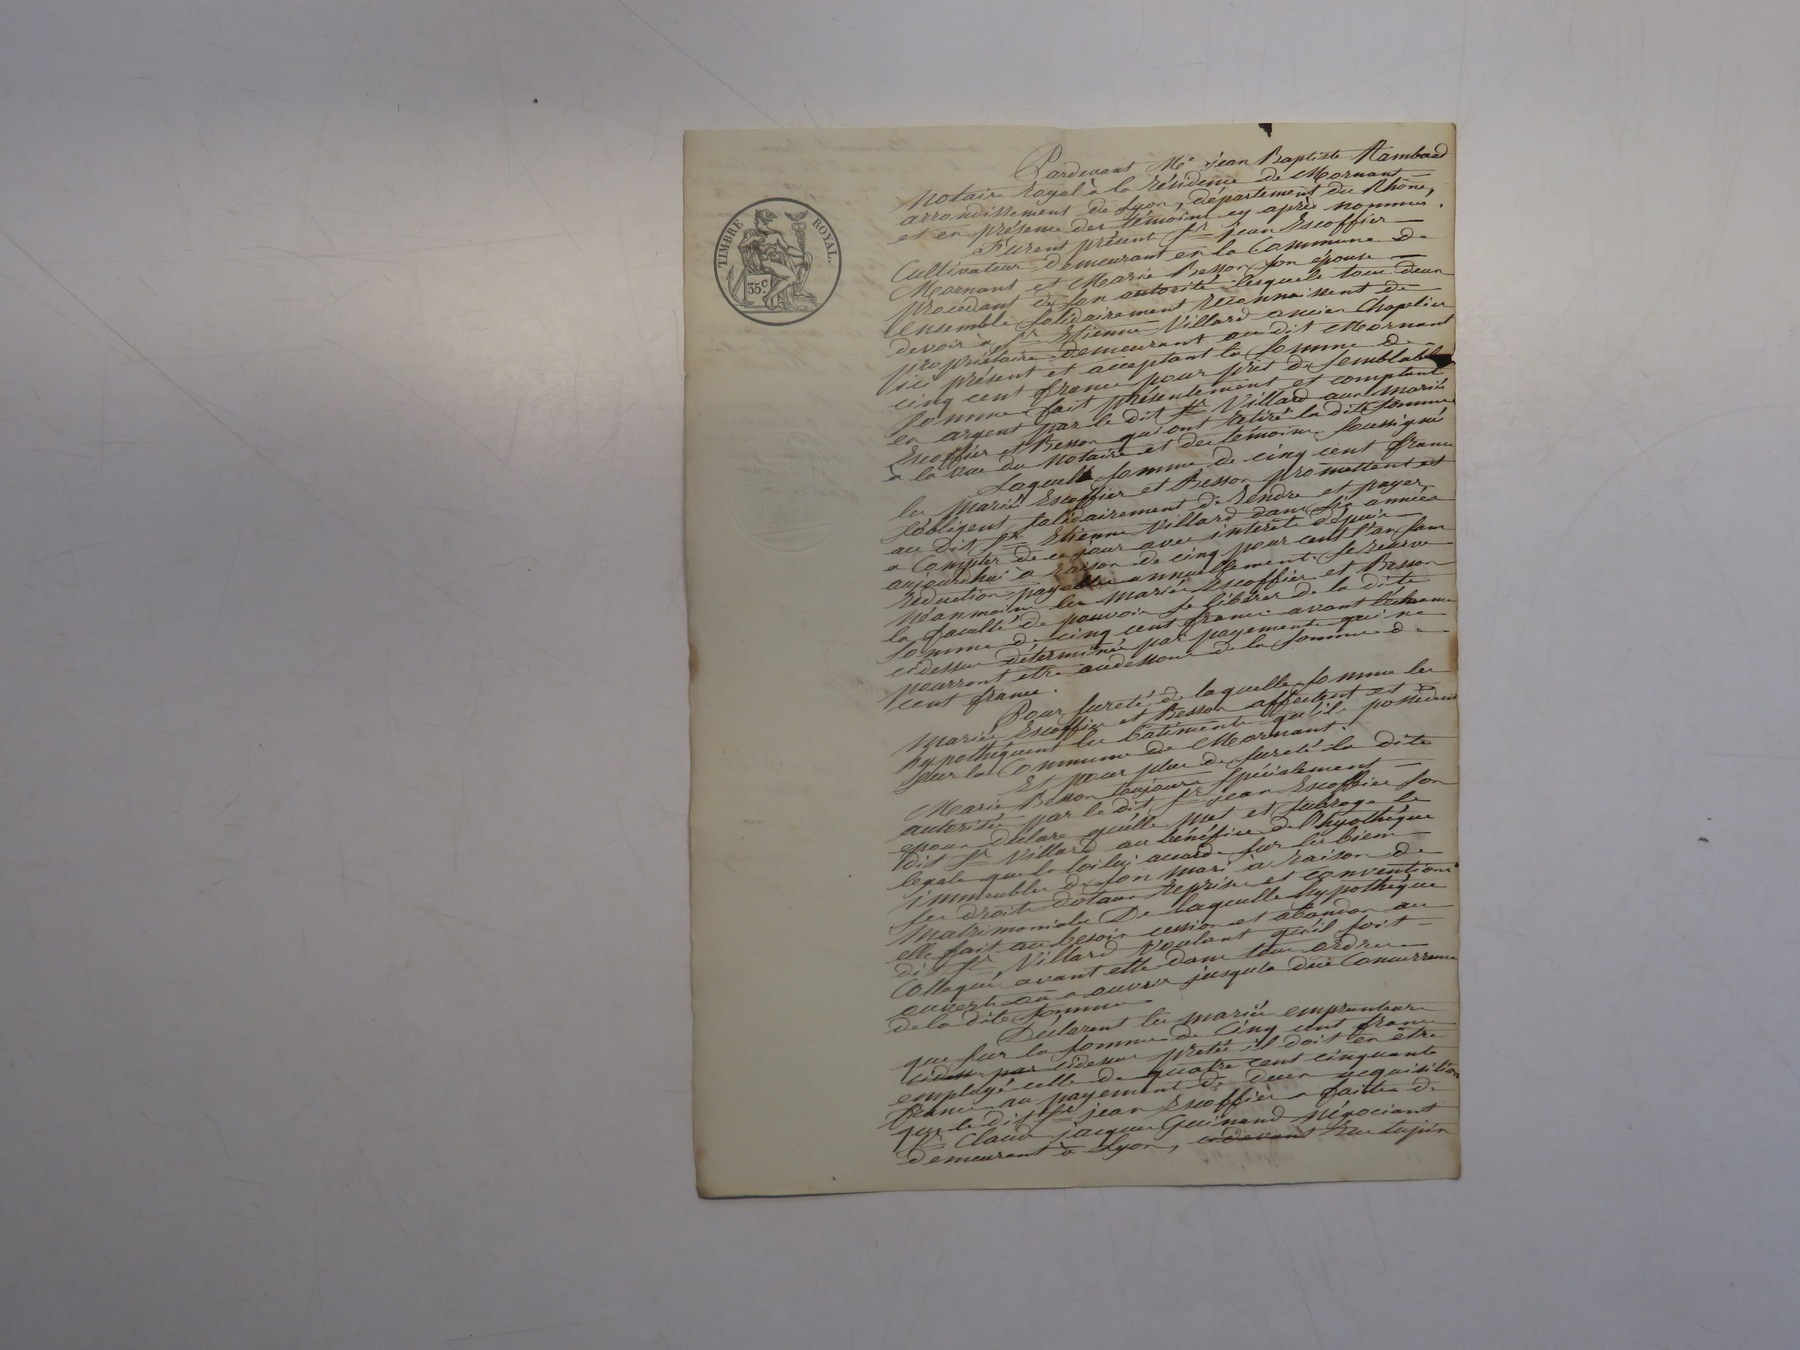 TIMBRE ROYAL.
35c.
Pardevant Me jean Baptiste Rambaud
Notaire royal à la résidence de Mornant
arrondissement de Lyon, département du Rhône,
et en présence des témoins cy après nommés.
Furent présent Sr jean Escoffier
Cultivateur demeurant en la Commune de
Mornant et Marie Besson son épouse
procedant de son autorité lesquels tous deux
ensemble solidairement reconnaissent de
devoir à Sr Etienne Villard ancien Chapelier
propriétaire demeurant au dit Mornant
ici présent et acceptant la somme de
cinq cent francs pour prêt de semblable
somme fait présentement et comptant
en argent par le dit Sr Villard aux mariés
Escoffier et Besson qui ont retiré la dite somme
à la vue du Notaire et des témoins soussignés
Laquelle somme de cinq cent francs
les mariés Escoffier et Besson promettent et
s'obligent solidairement de rendre et payer
au dit Sr Etienne Villard dans six années
a Compter de ce jour avec intérêts depuis
aujourdhui a raison de cinq pour cent l'an sans
réduction payables annuellement. Se réserve
néanmoins les mariés Escoffier et Besson
la faculté de pouvoir se libérer de la dite
somme de cinq cent francs avant l'échéance
cidessus déterminée par payements qui ne
pourront etre audessous de la somme de
cent francs.
Pour sureté de laquelle somme les
mariés Escoffier et Besson affectent et
hypothéquent les bâtiments qu'ils possèdent
sur la Commune de Mornant.
Et pour plus de sureté la dite
Marie Besson toujours spécialement
autorisée par le dit Sr jean Escoffier son
epoux déclare quelle met et subroge le
dit Sr Villard au bénéfice de l'hypothèque
légale que la loi lui accorde sur les biens
immeubles de son mari à raison de
ses droits dotaux reprises et conventions
matrimoniales De laquelle hypothèque
elle fait au besoin cession et abandon au
dit Sr Villard voulant qu'il soit
Colloqué avant elle dans tous ordres
ouverts ou a ouvrir jusqu'a due Concurrence
de la dite somme
Déclarent les mariés emprunteurs
que sur la somme de cinq cent francs
cidessus prêtée il doit en être
employé celle de quatre cent cinquante
francs au payement de deux acquisitions
que le dit Sr jean Escoffier a faites de
Sr Claude jacques Guinand Négociant
demeurant à Lyon, cidevant rue Lupin